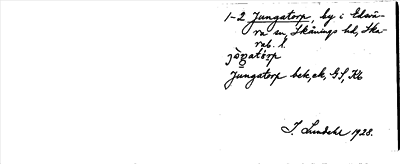 1-2 Jungatorp, by i Edsvä-
ra sn, Skånings hd, Ska-
rab. l.
jògatórp
Jungatorp bek, ek, GS, Kb
I. Lundahl 1928.